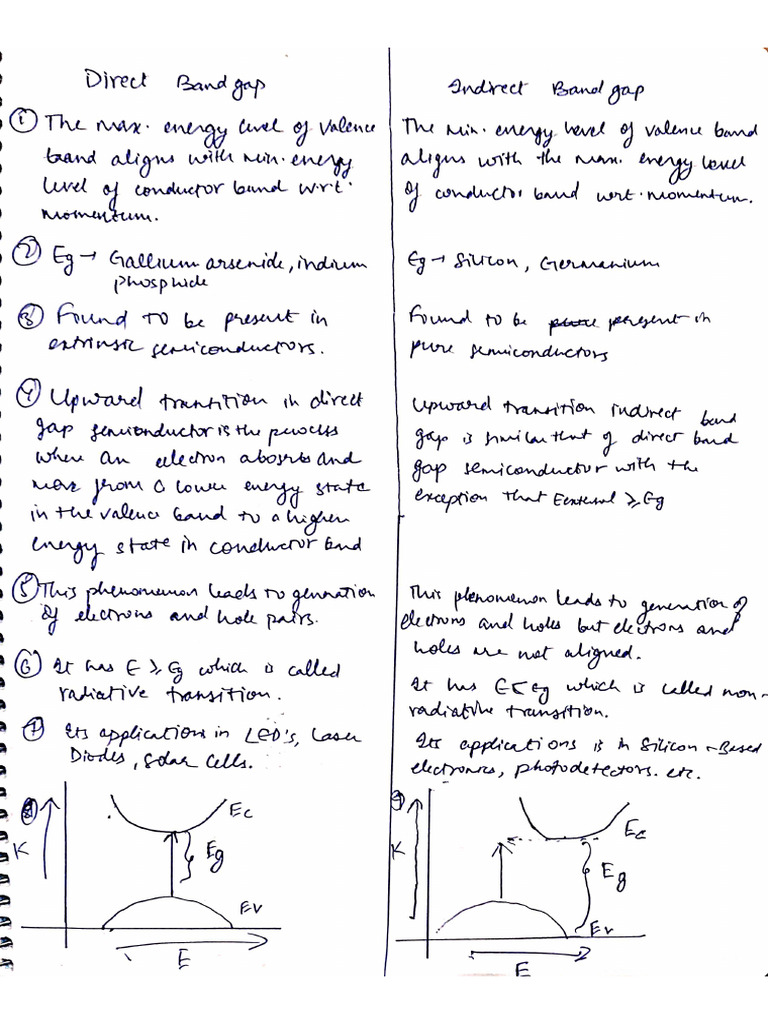 Direct Band gap
① The max. energy level of valence
band aligns with min. energy
level of conductor band w.r.t.
momentum.
② Eg → Gallium arsenide, indium
phosphide
③ Found to be present in
extrinsic semiconductors.
④ Upward transition in direct
gap semiconductor is the process
where an electron absorbs and
move from a lower energy state
in the valence band to a higher
energy state in conductor band
⑤ This phenomenon leads to generation
of electrons and hole pairs.
⑥ It has E ≥ Eg which is called
radiative transition.
⑦ Its applications in LED's, Laser
Diodes, Solar Cells.
⑧
K
Ec
Eg
Ev
E
Indirect Band gap
The Min. energy level of valence band
aligns with the max. energy level
of conductor band wrt. momentum.
Eg → Silicon, Germanium
Found to be present in
pure semiconductors
Upward transition indirect band
gap is similar that of direct band
gap semiconductor with the
exception that Eexternal ≥ Eg
This phenomenon leads to generation of
electrons and holes but electrons and
holes are not aligned.
It has E < Eg which is called non-
radiative transition.
Its applications is in Silicon-Based
electronics, photodetectors. etc.
K
Ec
Eg
Ev
E